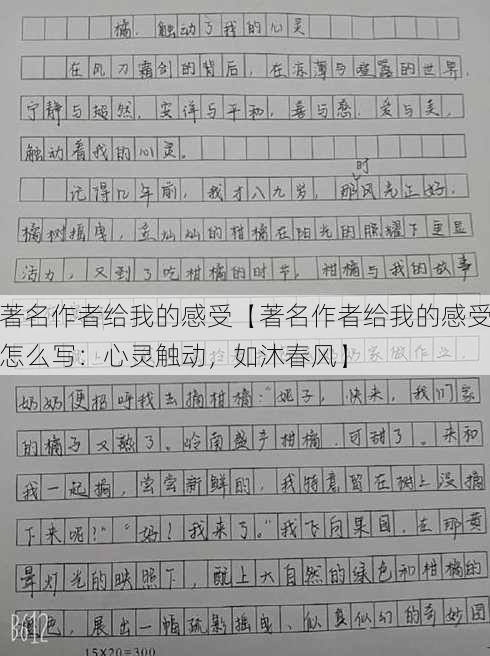 橘,触动了我的心灵
在风刀霜剑的背后,在凉薄与喧嚣的世界,
宁静与超然,安详与平和,善与恋.爱与美,
触动着我的心灵。
时
记得几年前,我才八九岁,那风光正好.
橘树摇曳,金灿灿的柑橘在阳光的照耀下更显
活力,又到了吃柑橘的时节,柑橘与我的故事
著名作者给我的感受【著名作者给我的感受
怎么写:心灵触动,如沐春风】
家做作业.
奶奶便招呼我去摘柑橘:"姚子,快来,我们家
的橘子又熟了。岭南盛产柑橘.可甜了。来和
我一起摘,尝尝新鲜的,我特意留在树上没摘
下来呢?""奶?我来了。"我飞向果园.在那黄
晕灯光的映照下,配上大自然的绿色和柑橘的
色,展出一幅疏影摇曳、似真似幻的奇妙图
B612
15×20=300